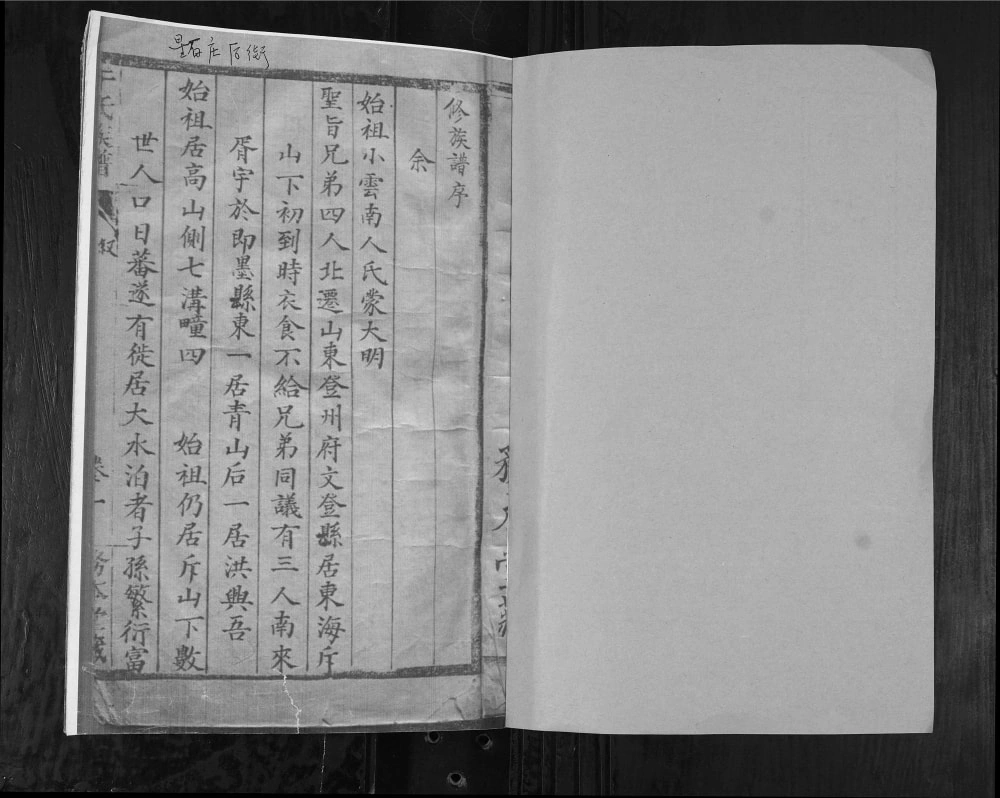 修族譜序
余
始祖小雲南人氏蒙大明
聖旨兄弟四人北遷山東登州府文登縣居東海斥
山下初到時衣食不給兄弟同議有三人南來
胥宇於即墨縣東一居青山后一居洪興吾
始祖居高山側七溝疃四 始祖仍居斥山下數
世人口日蕃遂有徙居大水泊者子孫繁衍富
氏族譜
叙
卷一